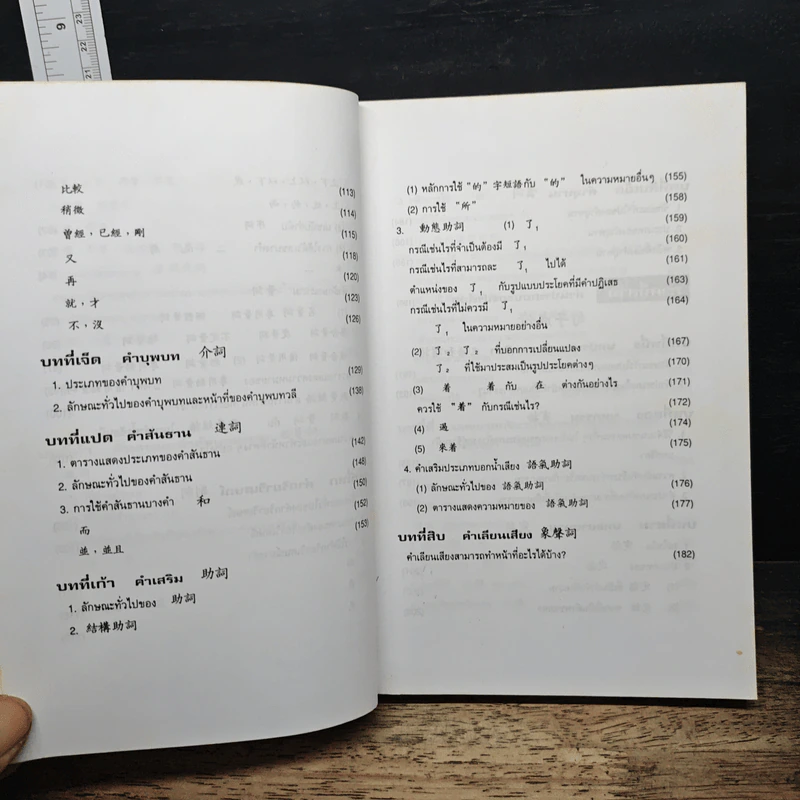 9
23
22
21
比較 (113)
稍微 (114)
曾經,已經,剛 (115)
又 (118)
再 (120)
就,才 (123)
不,沒 (126)
บทที่เจ็ด คำบุพบท 介詞
1. ประเภทของคำบุพบท (129)
2. ลักษณะทั่วไปของคำบุพบทและหน้าที่ของคำบุพบทวลี (138)
บทที่แปด คำสันธาน 連詞
1. ตารางแสดงประเภทของคำสันธาน (142)
2. ลักษณะทั่วไปของคำสันธาน (148)
3. การใช้คำสันธานบางคำ 和 (150)
而 (152)
並,並且 (153)
บทที่เก้า คำเสริม 助詞
1. ลักษณะทั่วไปของ 助詞
2. 結構助詞
(1) หลักการใช้ "的" 字短語กับ "的" ในความหมายอื่นๆ (155)
(2) การใช้ "所" (158)
3. 動態助詞 (1) 了₁ (159)
กรณีเช่นไรที่จำเป็นต้องมี 了₁ (160)
กรณีเช่นไรที่สามารถละ 了₁ ไปได้ (161)
ตำแหน่งของ 了₁ กับรูปแบบประโยคที่มีคำปฏิเสธ (163)
กรณีเช่นไรที่ไม่ควรมี 了₁ (164)
了₁ ในความหมายอย่างอื่น
(2) 了₂ 了₂ ที่บอกการเปลี่ยนแปลง (167)
了₂ ที่ใช้มาประสมเป็นรูปประโยคต่างๆ (170)
(3) 着 着 กับ 在 ต่างกันอย่างไร (171)
ควรใช้ "着" กับกรณีเช่นไร? (172)
(4) 過 (174)
(5) 來着 (175)
4. คำเสริมประเภทบอกน้ำเสียง 語氣助詞
(1) ลักษณะทั่วไปของ 語氣助詞 (176)
(2) ตารางแสดงความหมายของ 語氣助詞 (177)
บทที่สิบ คำเลียนเสียง 象聲詞
คำเลียนเสียงสามารถทำหน้าที่อะไรได้บ้าง? (182)